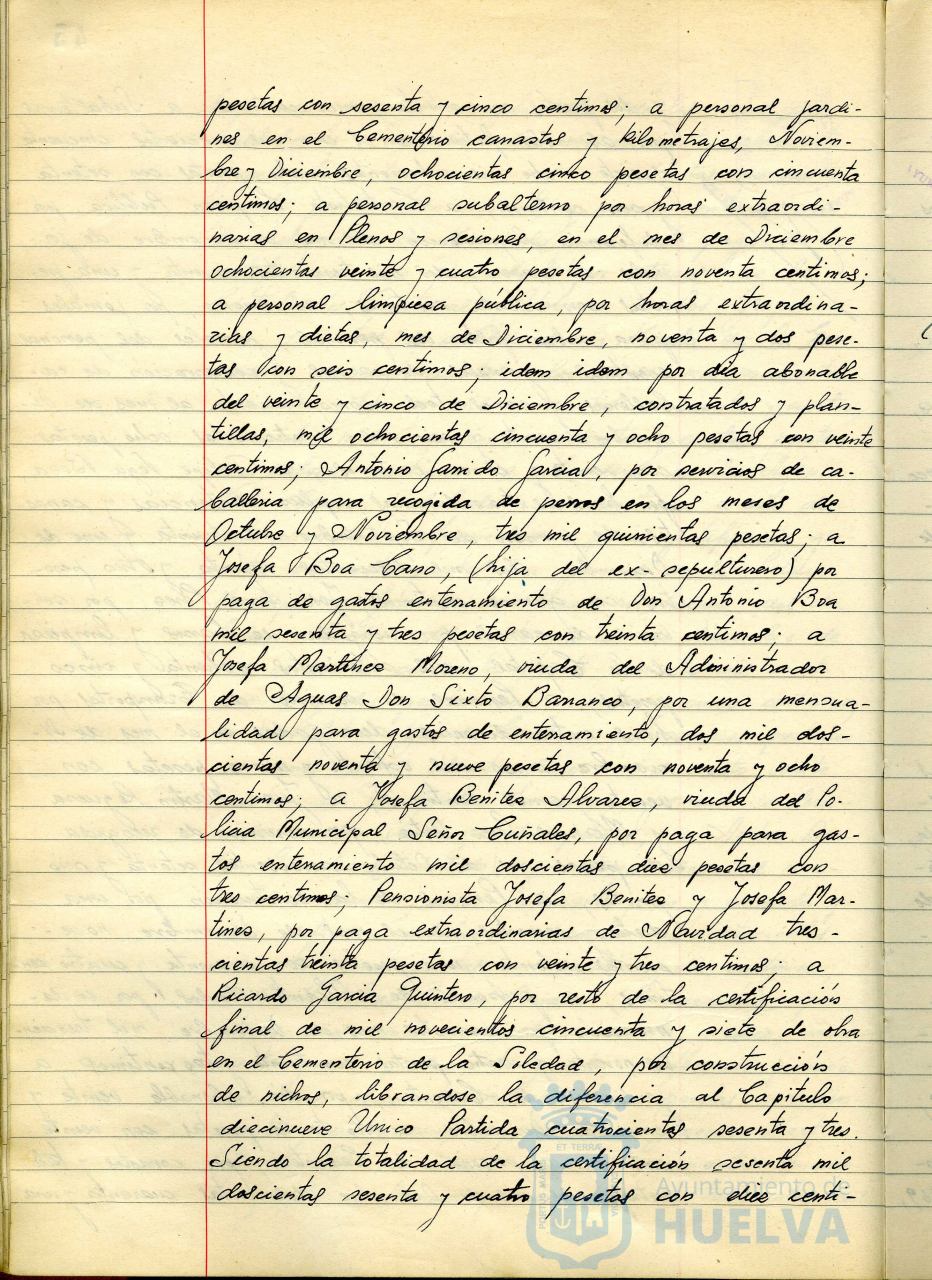 pesetas con sesenta y cinco centimos; a personal jardi-
nes en el Cementerio canastos y kilometrajes, Noviem-
bre y Diciembre, ochocientas cinco pesetas con cincuenta
centimos; a personal subalterno por horas extraordi-
narias en Plenos y sesiones, en el mes de Diciembre
ochocientas veinte y cuatro pesetas con noventa centimos;
a personal limpieza pública, por horas extraordina-
rias y dietas, mes de Diciembre, noventa y dos pese-
tas con seis centimos; idem idem por dia abonable
del veinte y cinco de Diciembre, contratados y plan-
tillas, mil ochocientas cincuenta y ocho pesetas con veinte
centimos; Antonio Garrido Garcia, por servicios de ca-
balleria para recogida de perros en los meses de
Octubre y Noviembre, tres mil quinientas pesetas; a
Josefa Boa Cano, (hija del ex-sepulturero) por
paga de gastos enterramiento de Don Antonio Boa
mil sesenta y tres pesetas con treinta centimos; a
Josefa Martinez Moreno, viuda del Administrador
de Aguas Don Sixto Barranco, por una mensua-
lidad para gastos de enterramiento, dos mil dos-
cientas noventa y nueve pesetas con noventa y ocho
centimos; a Josefa Benitez Alvarez, viuda del Po-
licia Municipal Señor Cuñales, por paga para gas-
tos enterramiento mil doscientas diez pesetas con
tres centimos; Pensionista Josefa Benitez y Josefa Mar-
tinez, por paga extraordinarias de Navidad tres-
cientas treinta pesetas con veinte y tres centimos; a
Ricardo Garcia Quintero, por resto de la certificación
final de mil novecientos cincuenta y siete de obra
en el Cementerio de la Soledad, por construcción
de nichos, librandose la diferencia al Capitulo
diecinueve Unico Partida cuatrocientas sesenta y tres.
Siendo la totalidad de la certificación sesenta mil
doscientas sesenta y cuatro pesetas con diez centi-
Ayuntamiento de
HUELVA